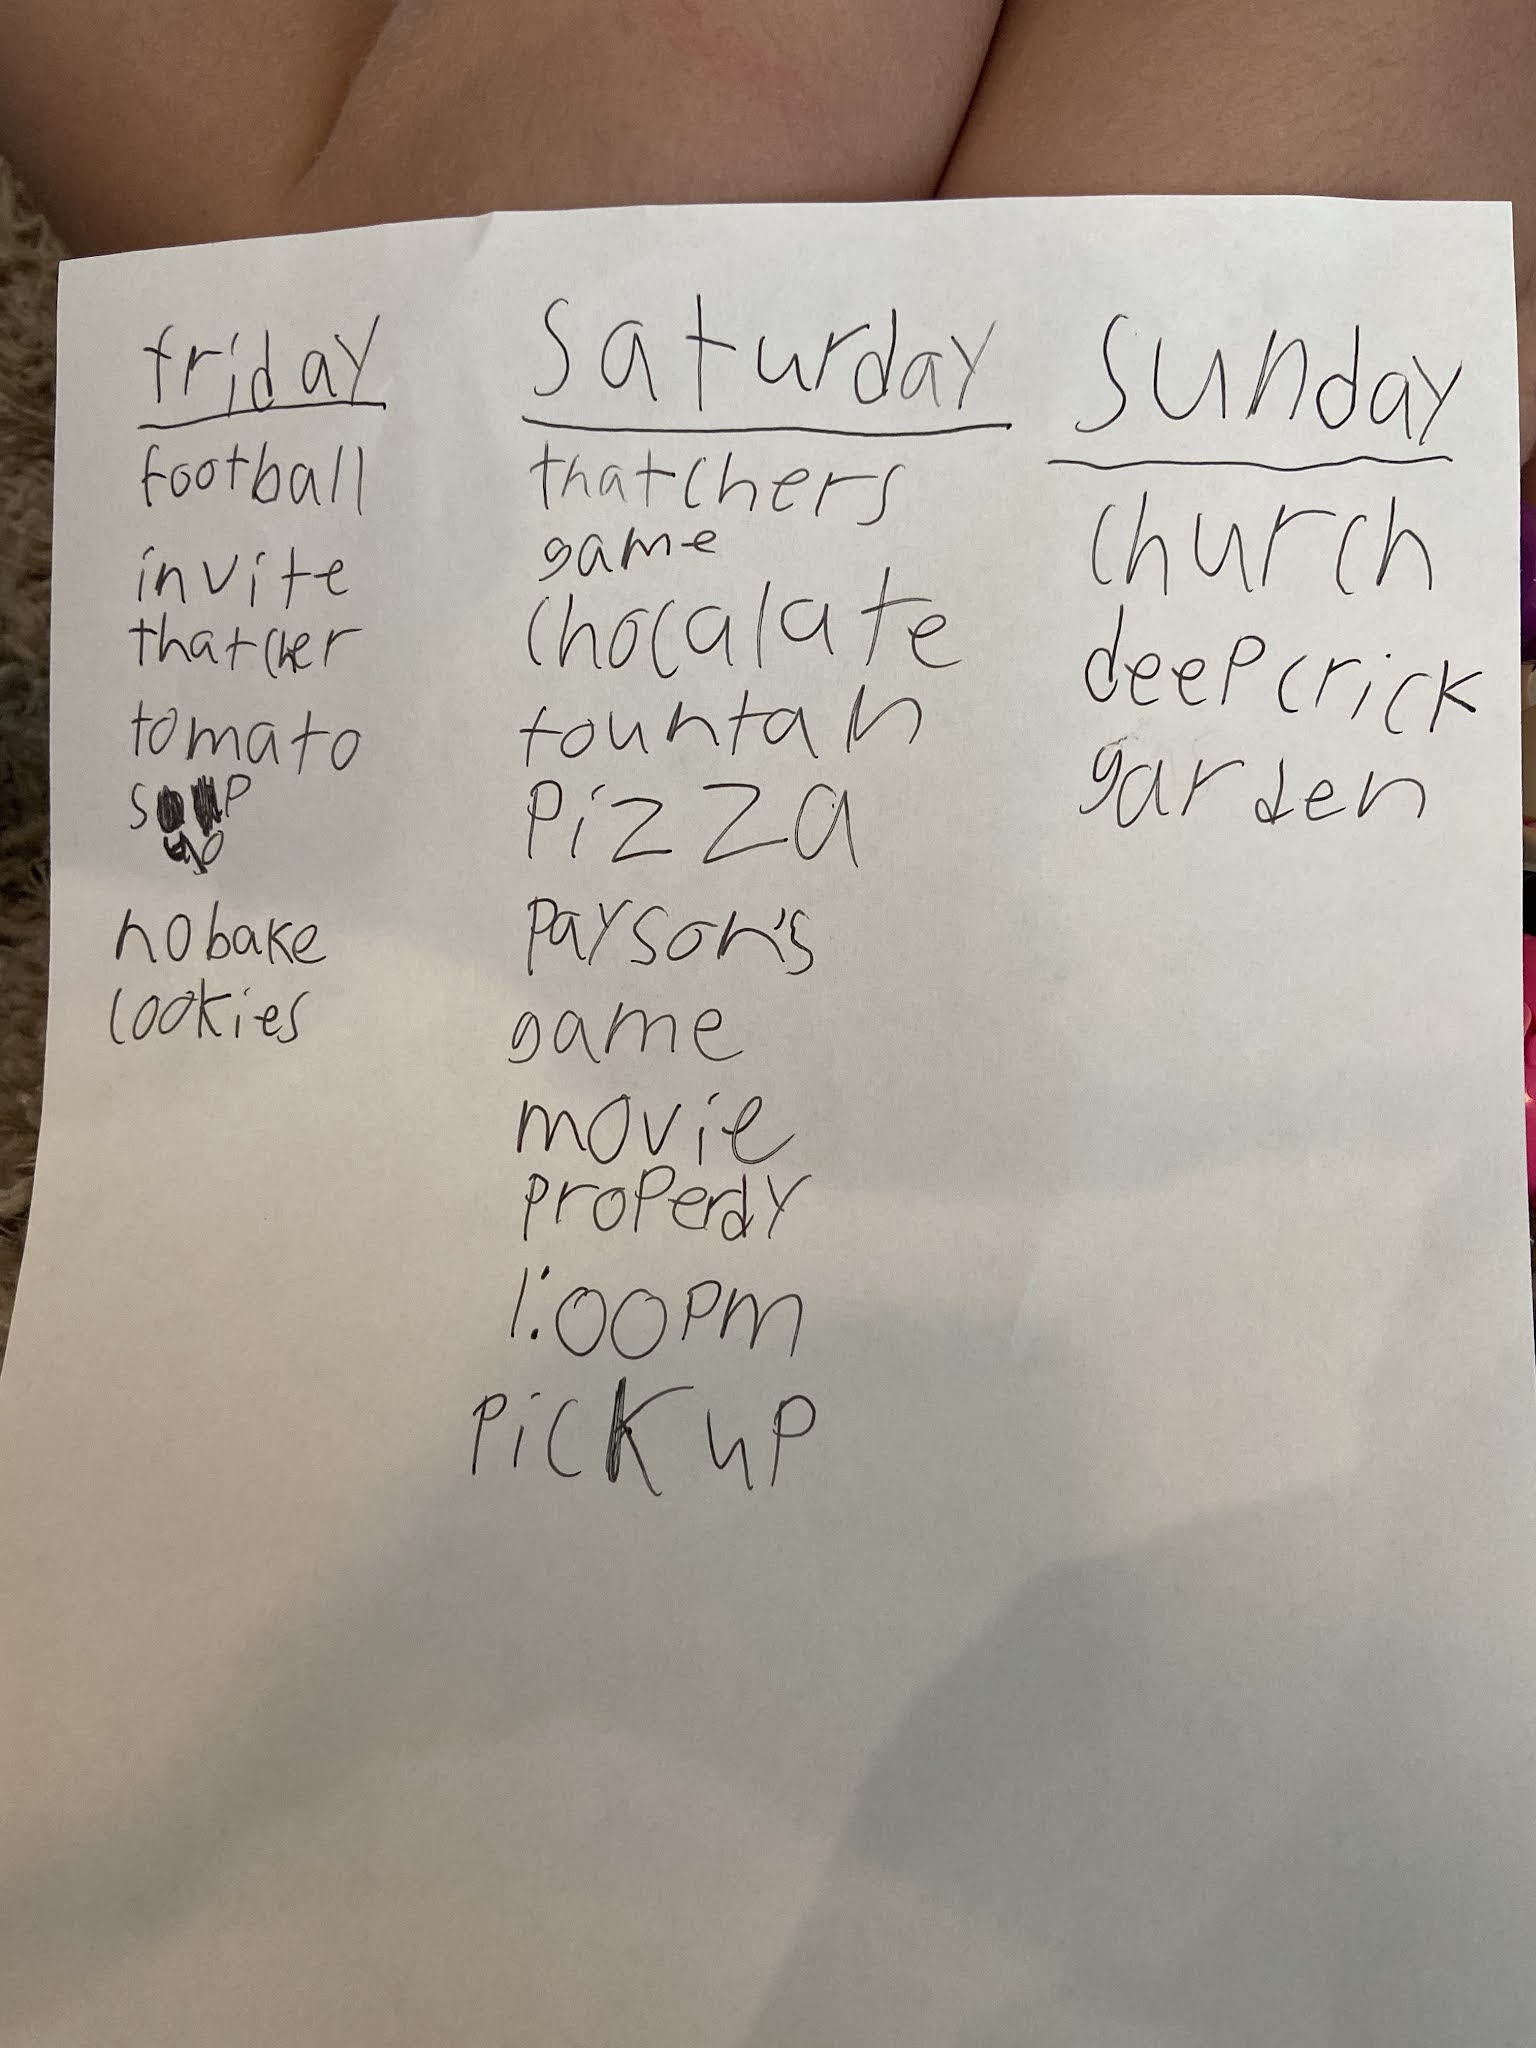 friday
football
invite
thatcher
tomato
nobake
cookies
saturday
thatchers
game
chocalate
fountain
pizza
payson's
game
movie
properdy
1:00pm
pick up
sunday
church
deep crick
garden